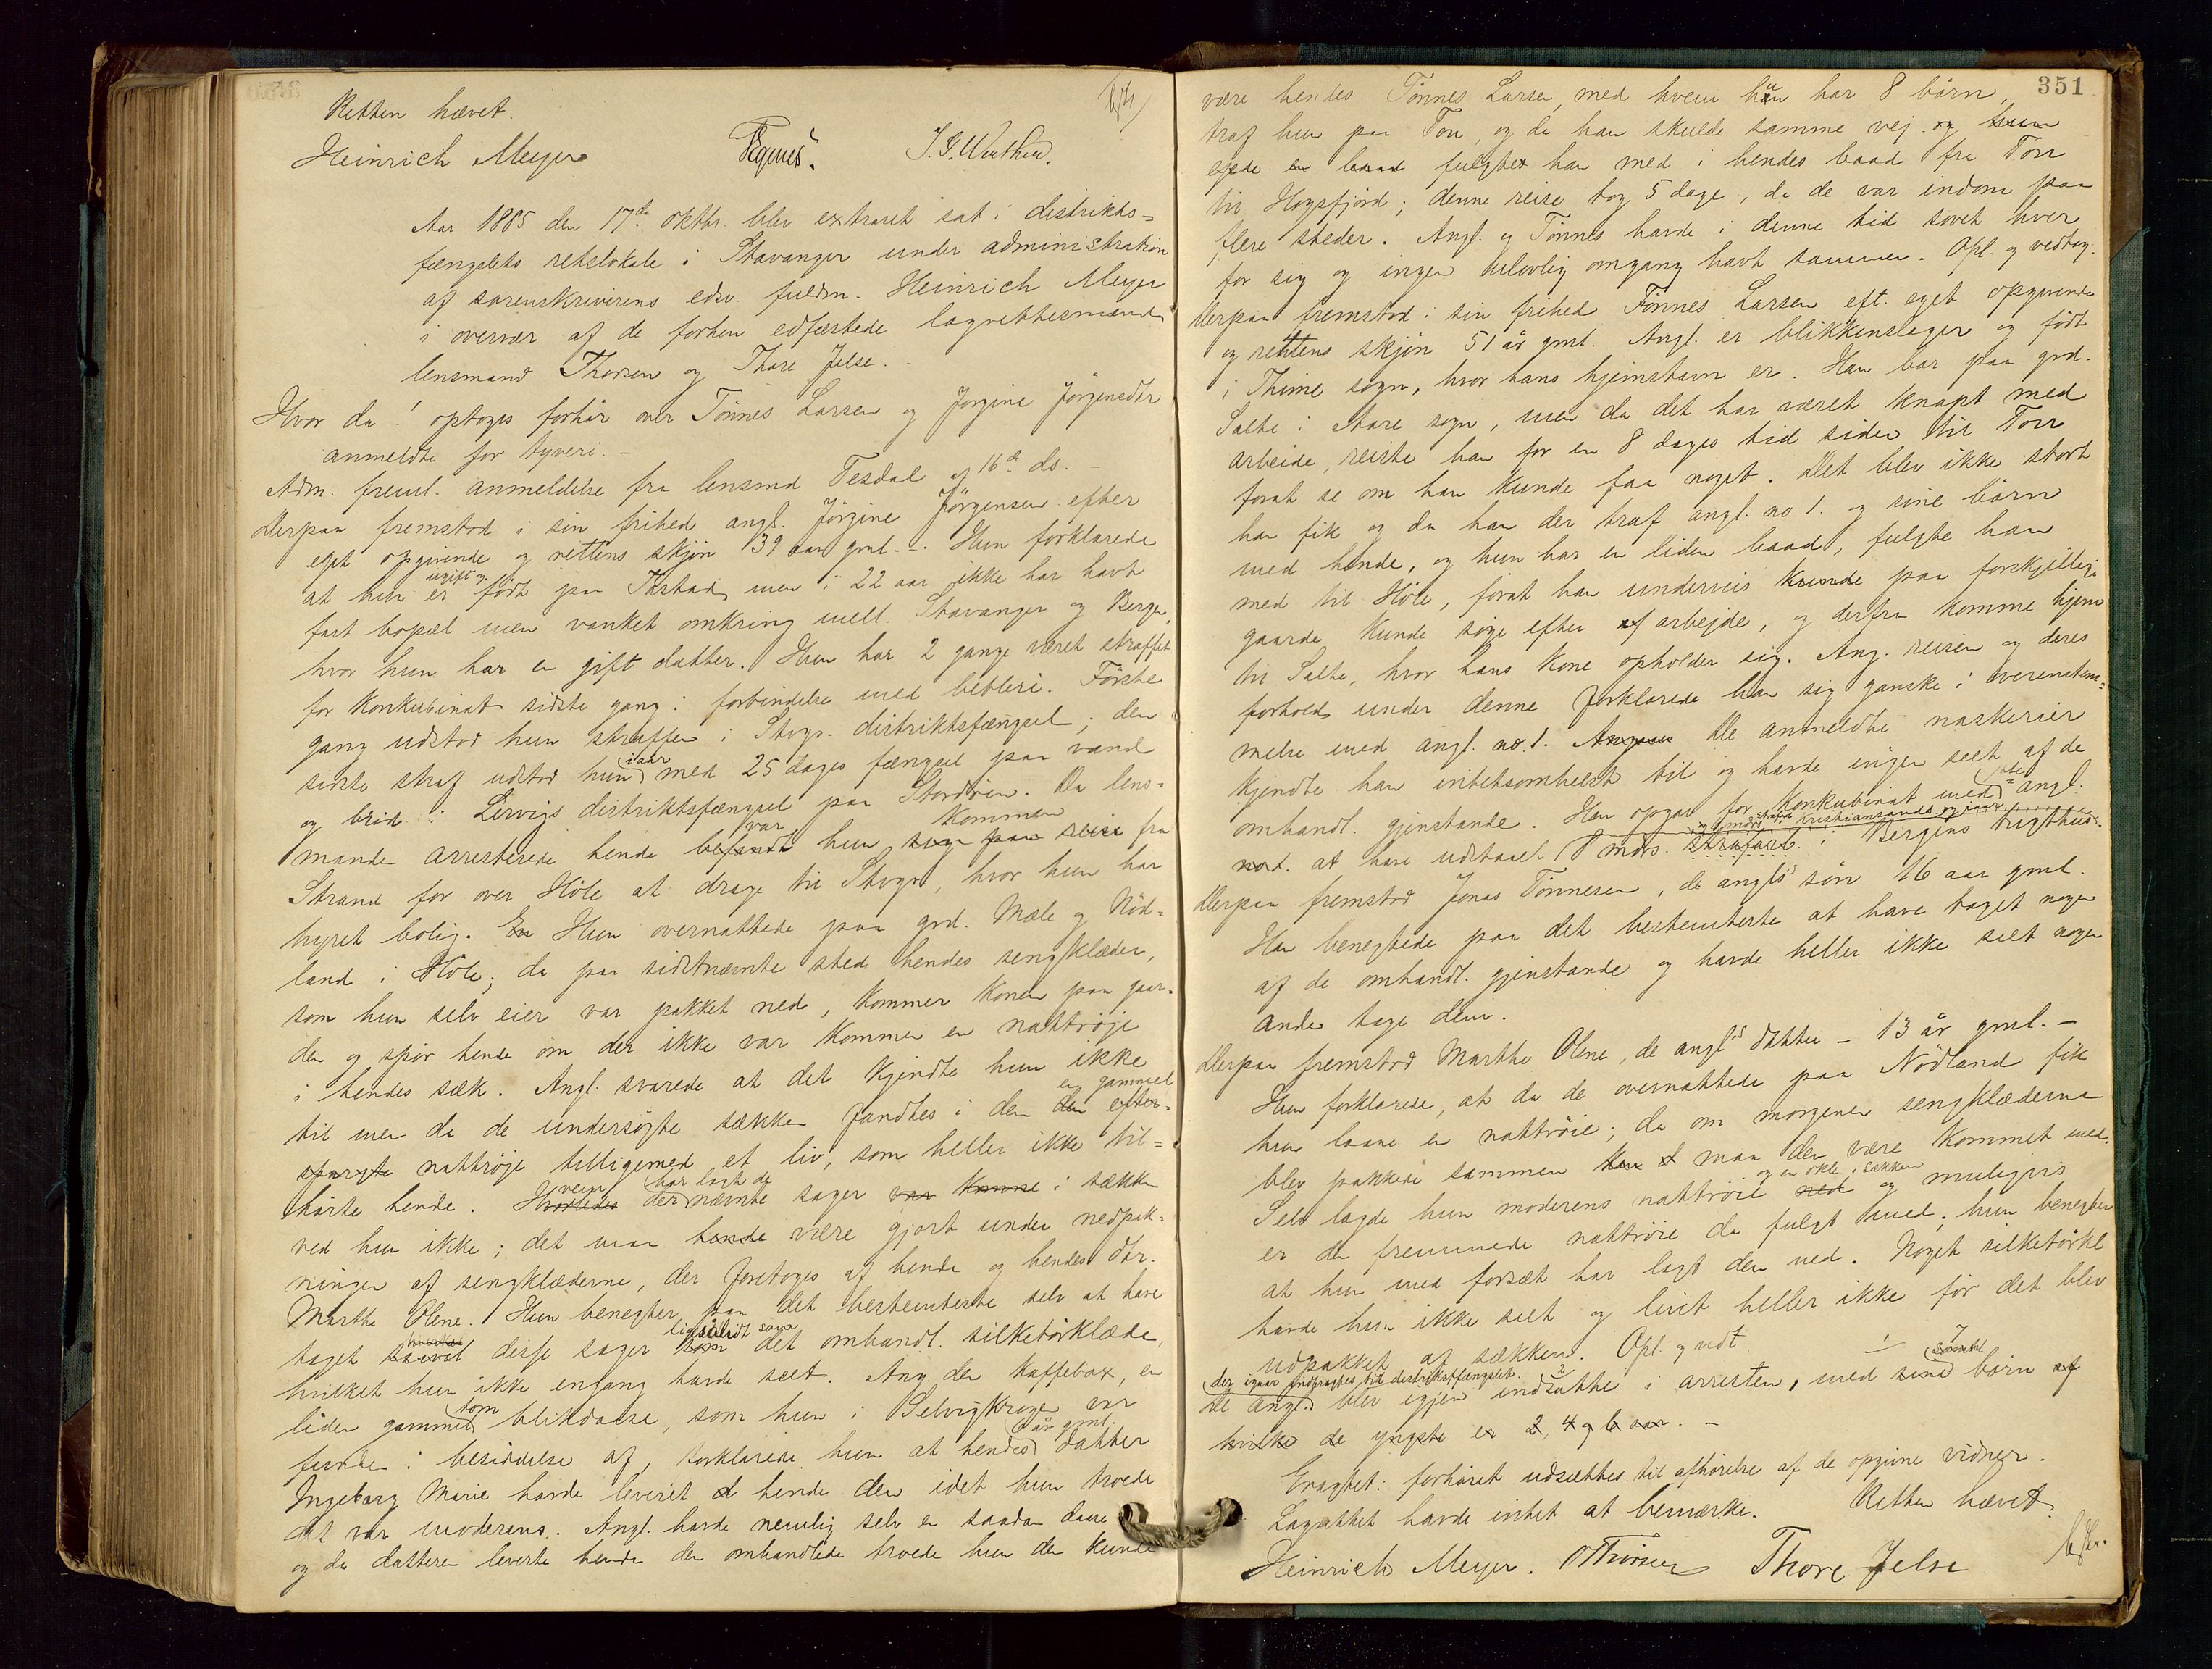 Retten hævet.
Heinrich Meyer
Aar 1885 den 17de oktbr. blev extraret sat i distrikts=
fængslets retslokale i Stavanger under administration
af sorenskriverens edsv. fuldm. Heinrich Meyer
i overvær af de forhen edfæstede lagrettesmænd
lensmand Thorsen og Thore Jelse.
Hvor da! optoges forhør over Tönnes Larsen og Jörgine Jörgensdtr
anmeldte for tyveri. –
Adm. freml. anmeldelse fra lensmd Tesdal af 16de ds. –
Derpaa fremstod i sin frihed angl. Jörgine Jörgensen efter
eget opgivende og rettens skjön 39 aar gml. –. Hun forklarede
at hun er ugift og født paa Karstad, men i 22 aar ikke har havt
fast bopæl men vanket omkring mell. Stavanger og Bergen,
hvor hun har en gift datter. Hun har 2 gange været straffet
for Konkubinat sidste gang i forbindelse med betleri. Første
gang udstod hun straffen i Stvgr. distriktsfængsel; den
sidste straf udstod hun iaar med 25 dages fængsel paa vand
og bröd i Lervigs distriktsfængsel paa Stordöen. Da lens=
mande arresterede hende befandt var hun sig paa reise kommen fra
Strand for over Höle at drage til Stvgr, hvor hun har
hyret bolig. En Hun overnattede paa grd. Mæle og Nöd=
land i Höle; da paa sidstnævnte sted hendes sengklæder,
som hun selv eier var pakket ned, kommer Konen paa gaar=
den og spör hende om der ikke var kommen en nattröje
i hendes sæk. Angl. svarede at det Kjendte hun ikke
til men da de undersögte sækken fandtes i den den en gammel efter=
spurgte nattröje tilligemed et liv, som heller ikke til=
hörte hende. Hvorledes hvem der har lagt de nævnte sager var komne i sækken
ved hun ikke; det maa hende være gjort under nedpak=
ningen af sengklæderne, der foretoges af hende og hendes dtr.
Marthe Olene. Hun benegter paa det bestemteste selv at have
taget saavel disse sager som ligesålidt som det omhandl. silketörklæde,
hvilket hun ikke engang havde seet. Ang. den Kaffebox, en
liden gammel tom blikdaase, som hun i Selvigkrogen var
funden i besiddelse af, forklarede hun at hendes 6 år gml. datter
Ingeborg Marie havde leveret d hende den idet hun troede
det var moderens. Angl. havde nemlig selv en saadan daase
og da datteren leverte hende den omhandlede troede hun den kunde
351
være hendes. Tönnes Larsen, med hvem hun har 8 börn,
traf hun paa Tou, og da han skulde samme vej og hun
ejede en baad fulgte han med i hendes baad fra Tou
til Högsfjord; denne reise tog 5 dage, da de var indom paa
flere steder. Angl. og Tönnes havde i denne tid sovet hver
for sig og ingen ulovlig omgang havt sammen. Opl. og vedtog.
Derpaa fremstod i sin frihed Tönnes Larsen eft. eget opgivende
og rettens skjön 51 år gml. Angl. er blikkenslager og födt
i Thime sogn, hvor hans hjemstavn er. Han bor paa grd.
Salte i Nare sogn, men da det har været knapt med
arbeide, reiste han for en 8 dages tid siden til Tou
forat se om han kunde faa noget. Det blev ikke stort
han fik og da han der traf angl. no 1. og sine börn
med hende, og hun har en liden baad, fulgte han
med til Höle, forat han underveis kunde paa forskjellige
gaarde kunde söge efter af arbejde, og derfra komme hjem
til Salte, hvor hans kone opholder sig. Ang. reisen og deres
forhold under denne forklarede han sig ganske i overenstem=
melse med angl. no. 1. De anmeldte naskerier
kjendte han intetsomhelst til og havde ingen seet af de
omhandl. gjenstande. Han opgav for Konkubinat med angl.
at have udstaaet 8 mdrs. strafarb. i Bergens tugthus.
Derpaa fremstod Jonas Tönnesen, de angls sön 16 aar gml.
Han benegtede paa det bestemteste at have taget nogen
af de omhandl. gjenstande og havde heller ikke seet nogen
anden tage dem.
Derpaa fremstod Marthe Olene, de angls datter – 13 år gml. –
Hun forklarede, at da de overnattede paa Nödland fik
hun laane en nattröie; da om morgenen sengklæderne
blev pakkede sammen maa den være kommet med.
Selv lagde hun moderens nattröie ned og en økle i sækken og muligvis
er den fremmede nattröie da fulgt med; hun benegter
at hun med forsæt har lagt den ned. Noget silketörkl
havde hun ikke seet og livet heller ikke för det blev
udpakket af sækken. Opl. og vedt
der igaar indbragtes til distriktsfængslet.
de angl. 2 blev igjen indsatte i arresten, med sine 7 samtl börn af
hvilke de yngste er 2, 4 og 6 aar. –
Eragtet: forhöret udsættes til afhörelse af de opgivne vidner.
Lagrettet havde intet at bemærke. Retten hævet.
Heinrich Meyer. OThorsen Thore Jelse